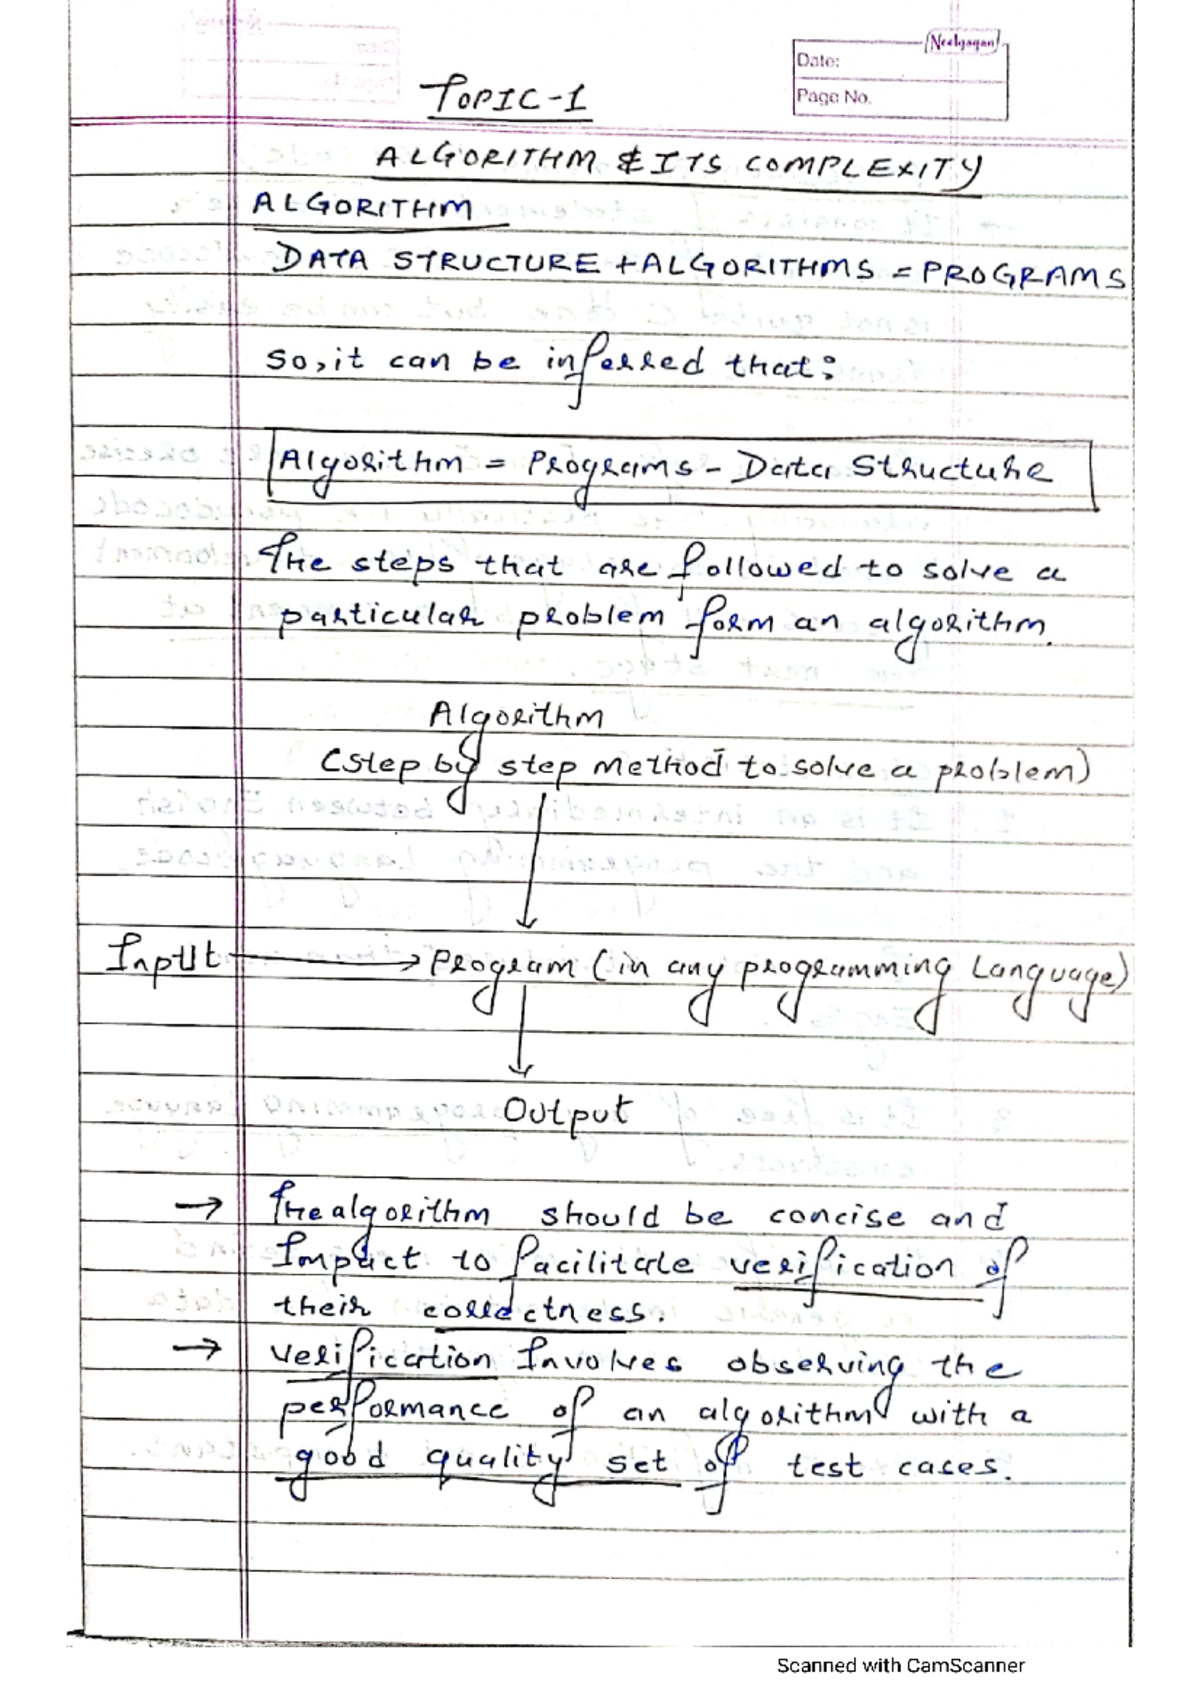 Neelgagan
Date:
Page No.
TOPIC-1
ALGORITHM & ITS COMPLEXITY
ALGORITHM
DATA STRUCTURE + ALGORITHMS = PROGRAMS
So, it can be inferred that:
Algorithm = Programs - Data Structure
The steps that are followed to solve a
particular problem form an algorithm.
Algorithm
(Step by step method to solve a problem)
Input → Program (in any programming Language)
Output
→ The algorithm should be concise and
Impact to facilitate verification of
their correctness.
→ verification Involves observing the
performance of an algorithm with a
good quality set of test cases.
Scanned with CamScanner